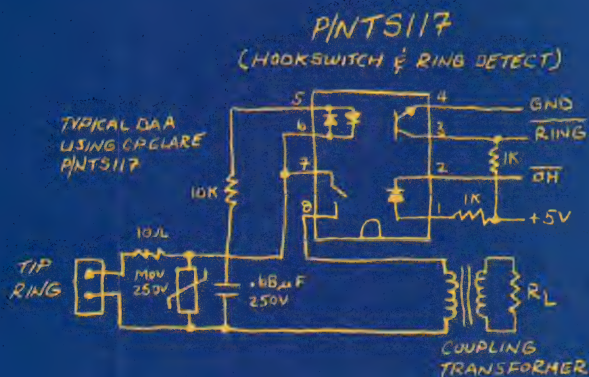 P/NTS117
(HOOKSWITCH & RING DETECT)
TYPICAL DAA
USING CPCLARE
P/NTS117
5
6
7
8
4
3
2
1
GND
RING
1K
OH
1K
+5V
10K
10Ω
MOV
250V
.68µF
250V
TIP
RING
RL
COUPLING
TRANSFORMER